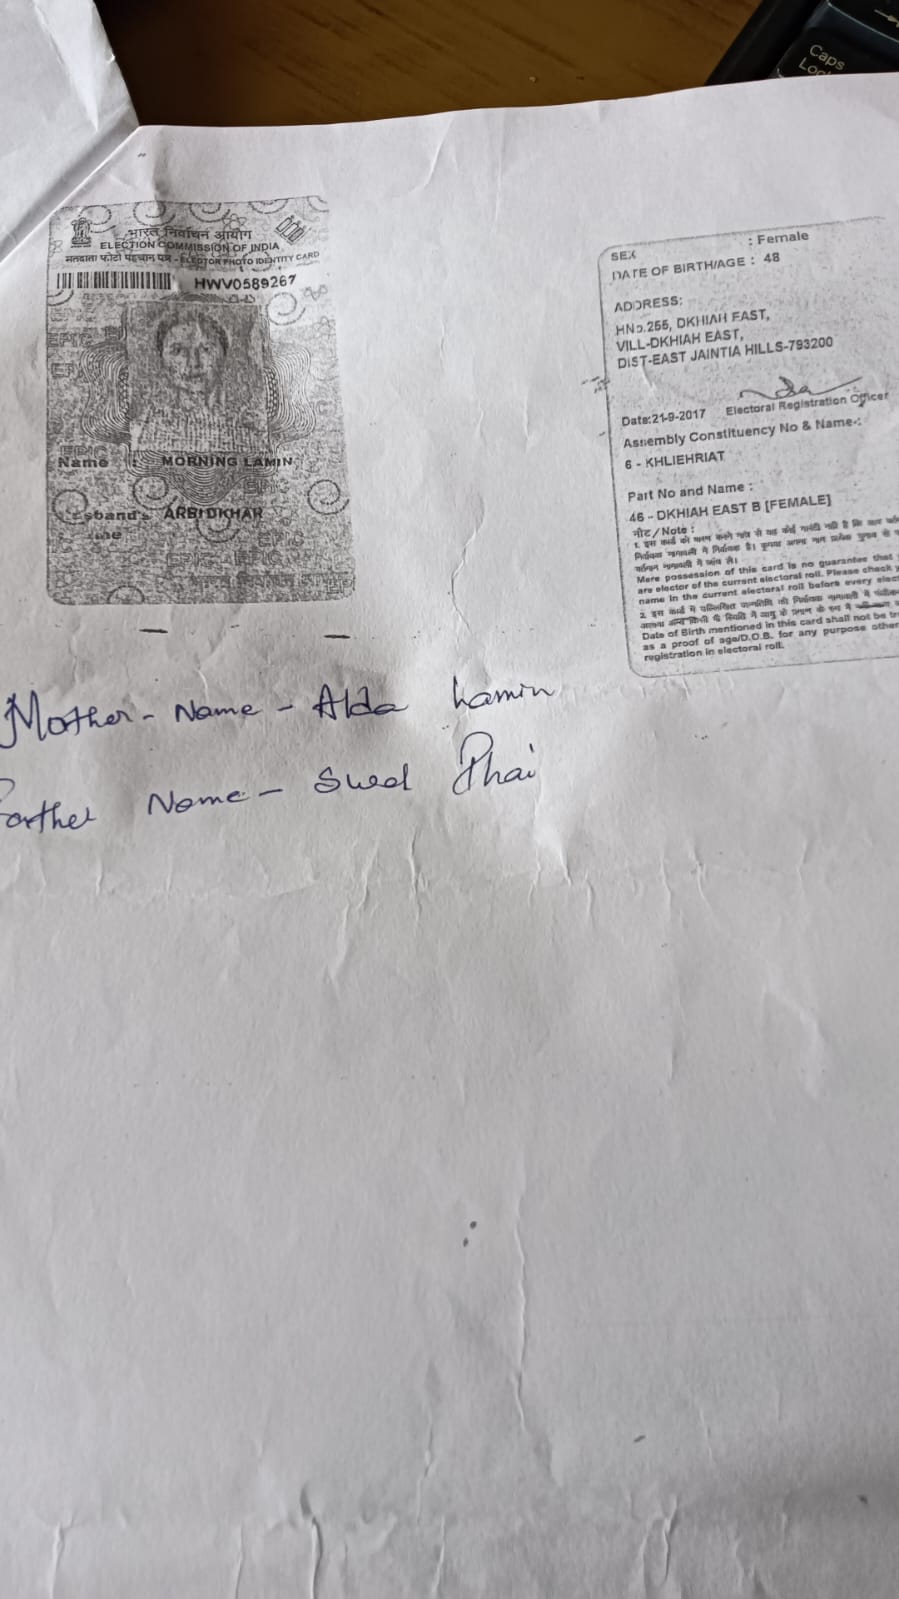 भारत निर्वाचन आयोग
ELECTION COMMISSION OF INDIA
मतदाता फोटो पहचान पत्र - ELECTOR PHOTO IDENTITY CARD
HWV0589267
Name : MORNING LAMIN
ARBI DKHAR
SEX : Female
DATE OF BIRTH/AGE : 48
ADDRESS:
HNo.255, DKHIAH EAST,
VILL-DKHIAH EAST,
DIST-EAST JAINTIA HILLS-793200
Date:21-9-2017 Electoral Registration Officer
Assembly Constituency No & Name-:
6 - KHLIEHRIAT
Part No and Name :
46 - DKHIAH EAST B [FEMALE]
नोट/Note :
Mere possession of this card is no guarantee that
are elector of the current electoral roll. Please check
name in the current electoral roll before every
Date of Birth mentioned in this card shall not be
as a proof of age/D.O.B. for any purpose other
registration in electoral roll.
Mother - Name - Alda Lamin
Name - Swed Phai
Caps